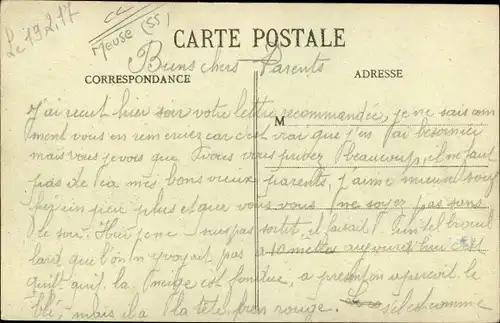 Le 19.2.17
Meuse (55)
CARTE POSTALE
Biens chers Parents
CORRESPONDANCE
ADRESSE
M
J'ai recut hier soir votre lettre recommandée, je ne sais com
ment vous en remerciez car c'est vrai que j'en besoin
mais vous je vois que vous vous privez beaucoup, il ne faut
pas de ca mes bons vieux parents, j'aime mieux souf
frir un peu plus et que vous vous ne soyez pas sans
le sou. Hier je ne suis pas sortit, il faisait un tel brouil
lard que l'on n'y voyait pas a 10 metres aujourd'hui
la neige est fondue, a present on apercoit le
blé, mais il a la tête bien rouge. s'il est comme